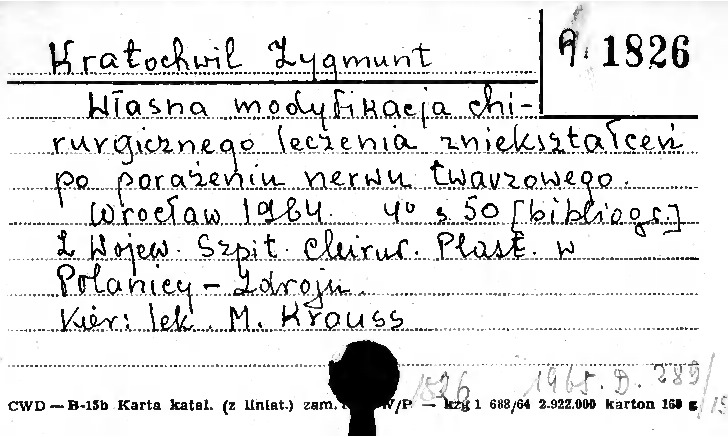 Kratochwil Zygmunt
A. 1826
Własna modyfikacja chi-
rurgicznego leczenia zniekształceń
po porażeniu nerwu twarzowego.
Wrocław 1964 4° s 50 [bibliogr.]
Z Wojew. Szpit. Chirur. Plast. w
Polanicy - Zdroju.
Kier: lek. M. Krauss
1826 1965. D. 289/15
CWD — B-15b Karta katal. (z liniat.) zam. W/P — kzg 1 688/64 2.922.000 karton 160 g